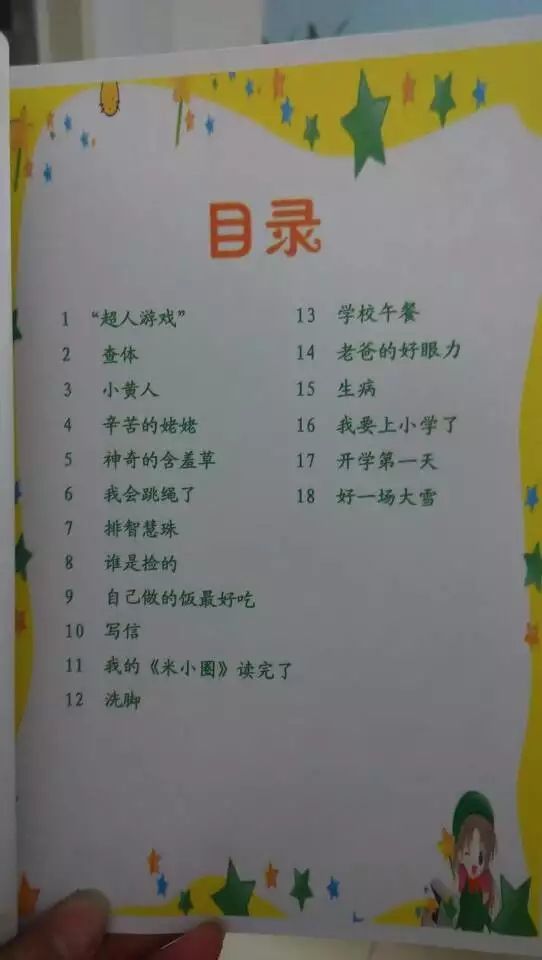 目录
1 “超人游戏”
2 查体
3 小黄人
4 辛苦的姥姥
5 神奇的含羞草
6 我会跳绳了
7 排智慧珠
8 谁是捡的
9 自己做的饭最好吃
10 写信
11 我的《米小圈》读完了
12 洗脚
13 学校午餐
14 老爸的好眼力
15 生病
16 我要上小学了
17 开学第一天
18 好一场大雪